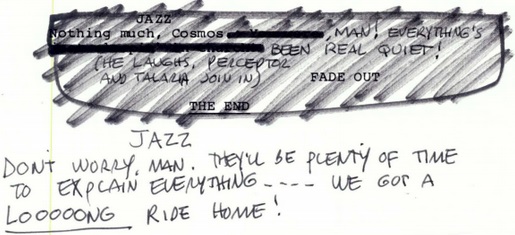 JAZZ
Nothing much, Cosmos , MAN! EVERYTHING'S
BEEN REAL QUIET!
(HE LAUGHS, PERCEPTOR
AND TALARIA JOIN IN) FADE OUT
THE END
JAZZ
DON'T WORRY, MAN. THEY'LL BE PLENTY OF TIME
TO EXPLAIN EVERYTHING---- WE GOT A
LOOOOONG RIDE HOME!